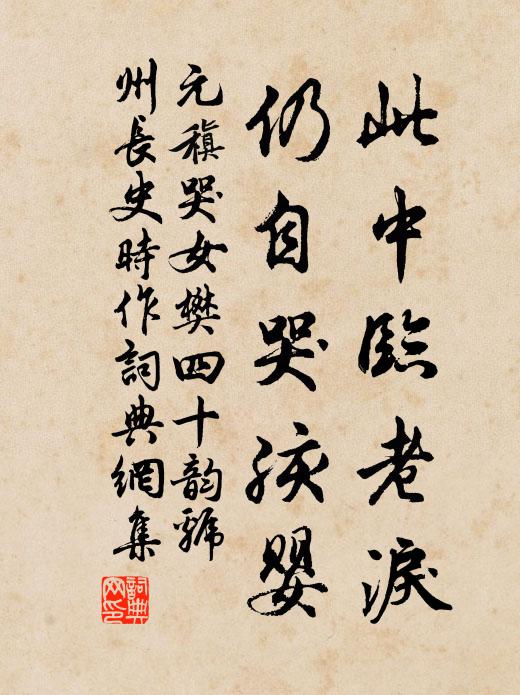 此中臨老淚
仍自哭孩嬰
元稹哭女樊四十韵虢
州長史時作詞典網集
詞典網印